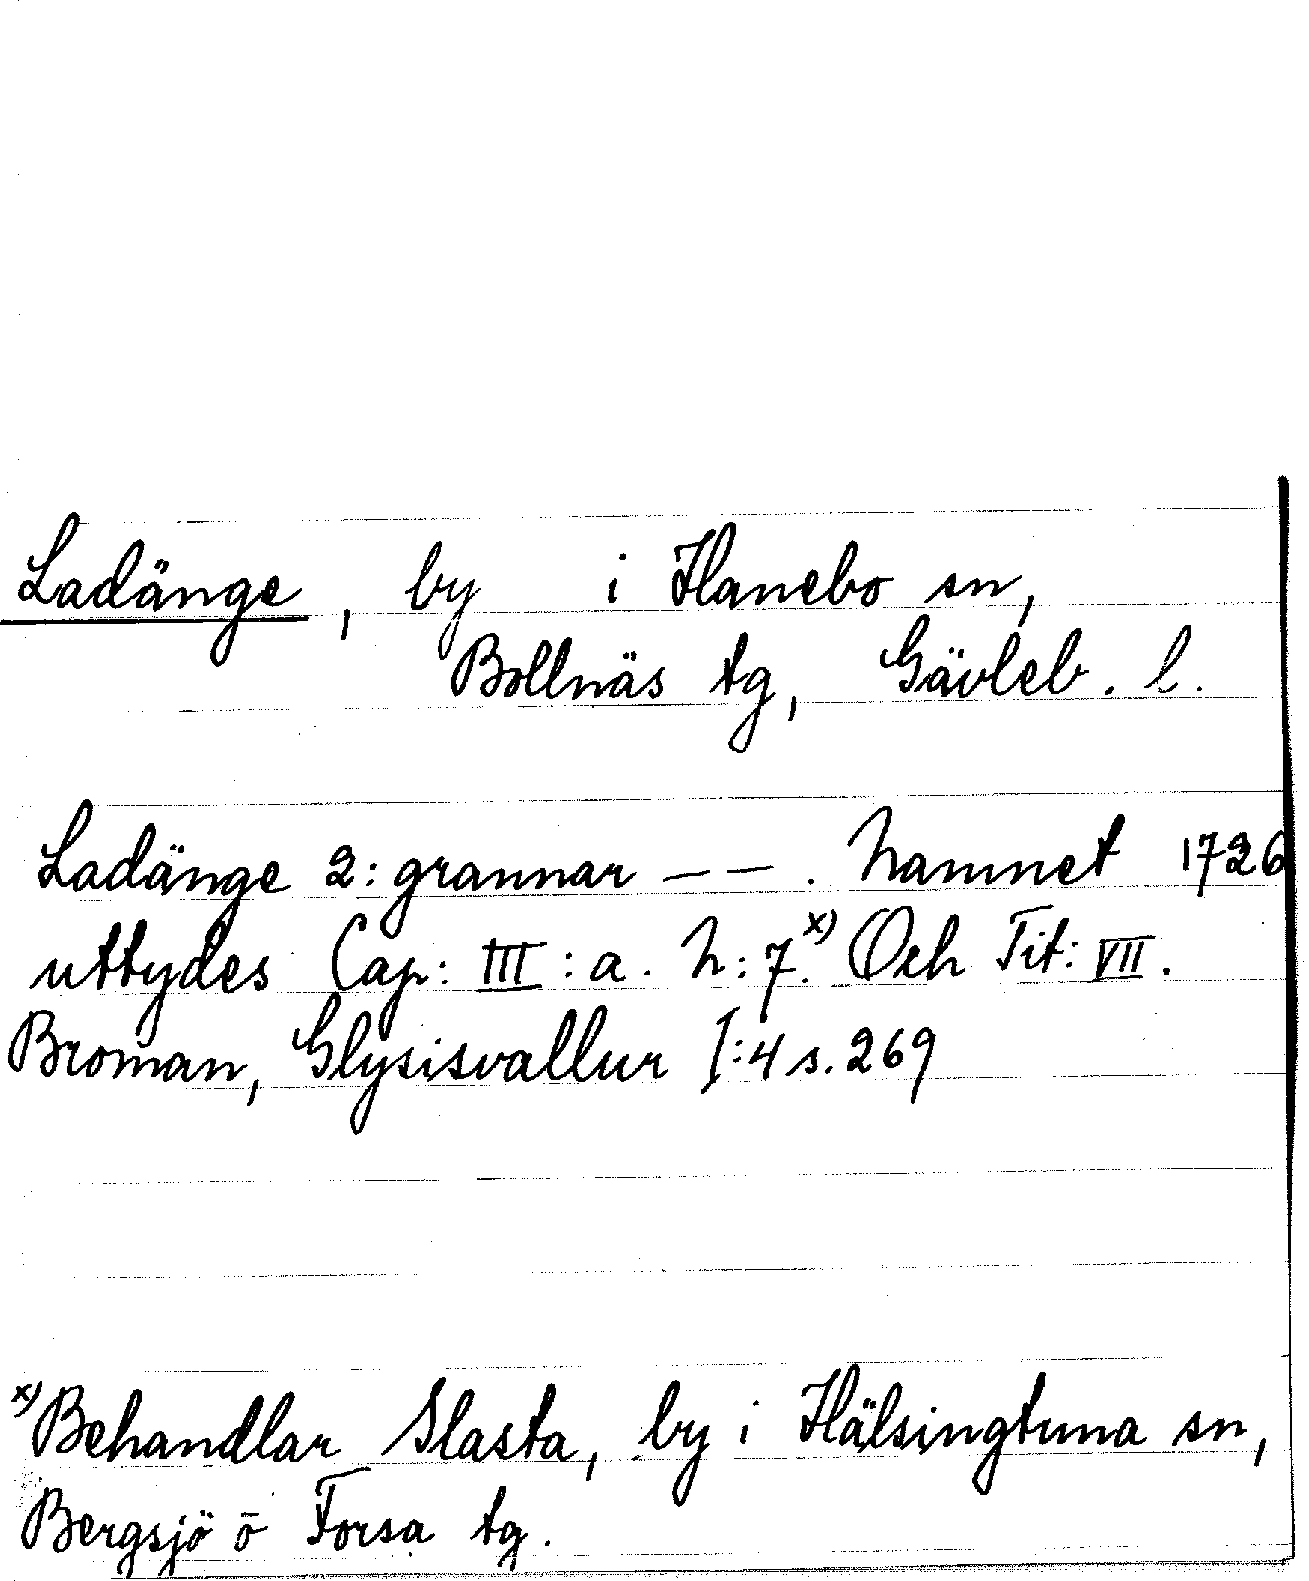 Ladänge, by i Hanebo sn,
Bollnäs tg, Gävleb. l.
Ladänge 2: grannar — — . Namnet 1726
uttydes Cap: III : a. N: 7.x) Och Tit: VII.
Broman, Glysisvallur I:4 s. 269
x) Behandlar Slasta, by i Hälsingtuna sn,
Bergsjö o Forsa tg.